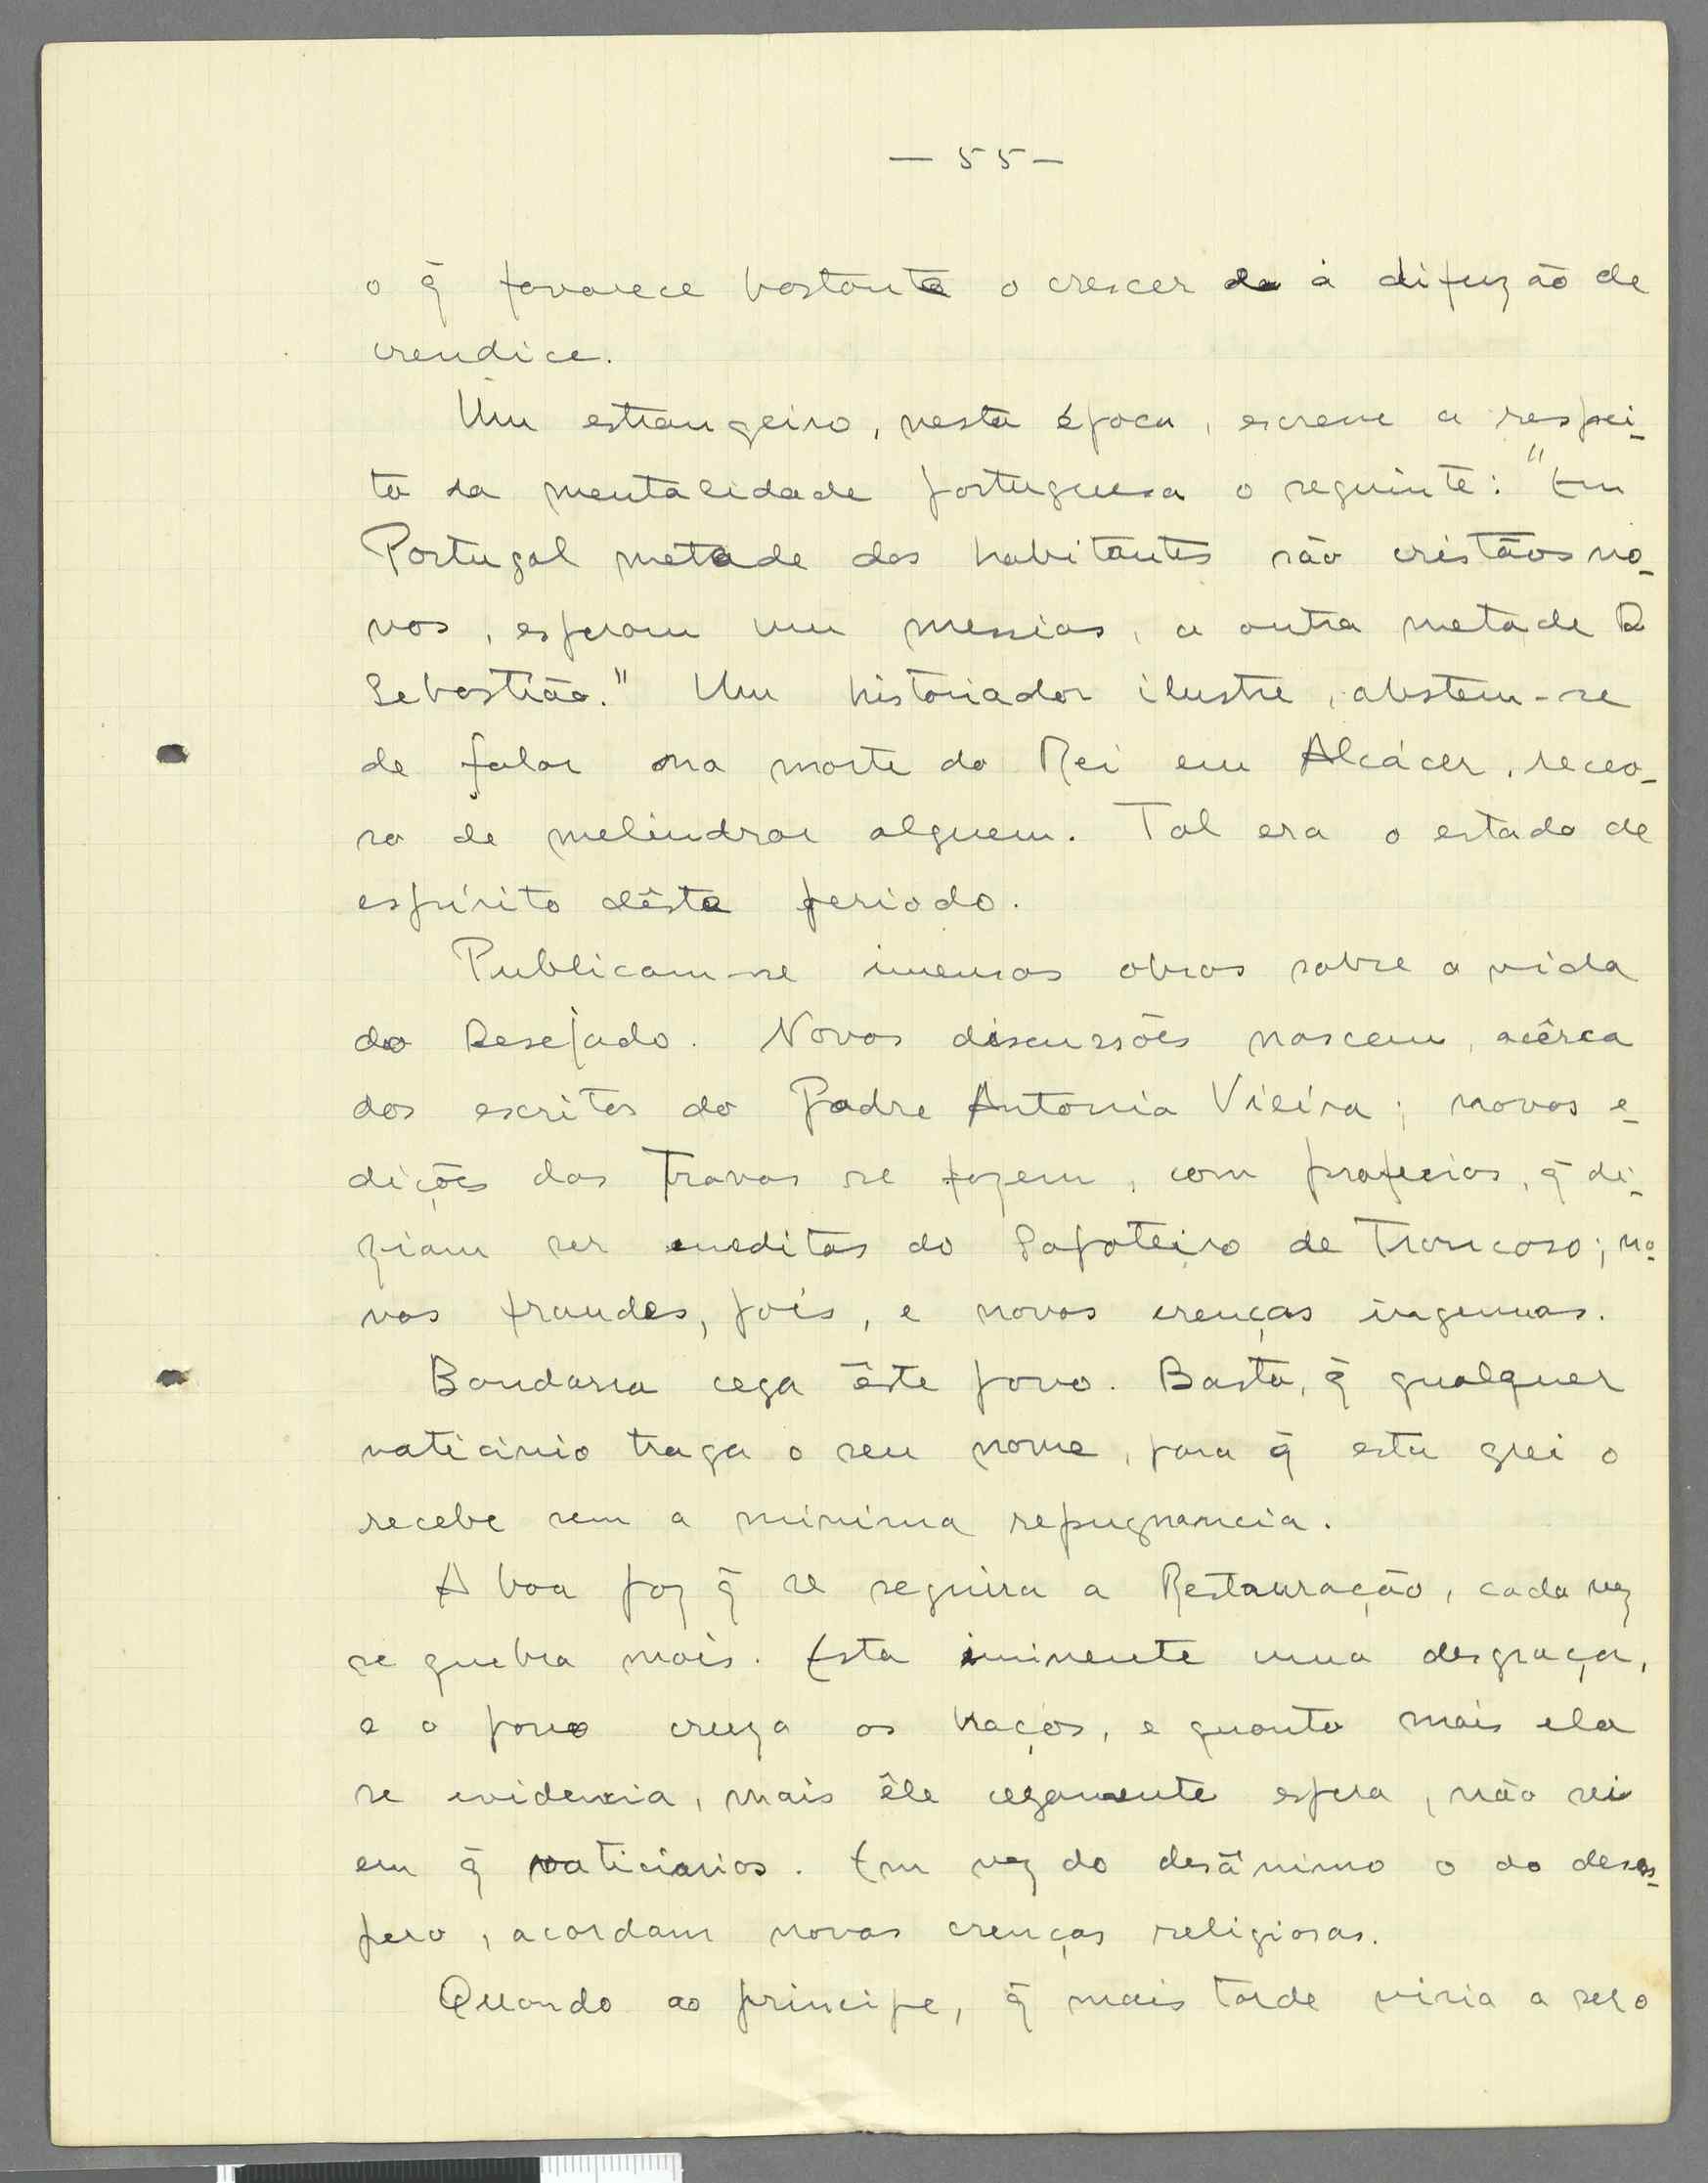 — 55 —
o q̃ favorece bastante o crescer da à difuzão de
crendice.
Um estrangeiro, nesta época, escreve a respei-
to da mentalidade portuguesa o seguinte: "Em
Portugal metade dos habitantes são cristãos no-
vos, esperam um messias, a outra metade D
Sebastião." Um historiador ilustre, abstem-se
de falar na morte do Rei em Alcácer, receo-
so de melindrar alguem. Tal era o estado de
espírito dêste periodo.
Publicam-se imensas obras sobre a vida
do Desejado. Novas discussões nascem, acêrca
dos escritos do Padre Antonia Vieira; novas e-
dições das Trovas se fazem, com profecias, q̃ di-
ziam ser ineditas do Sapateiro de Trancoso; no-
vas fraudes, pois, e novas crenças ingenuas.
Bandarra cega êste povo. Basta, q̃ qualquer
vaticinio traga o seu nome, para q̃ esta grei o
recebe sem a minima repugnancia.
A boa paz q̃ se seguira a Restauração, cada vez
se quebra mais. Esta iminente uma desgraça,
e o povo cruza os braços, e quanto mais ela
se evidencia, mais êle cegamente espera, não sei
em q̃ vaticinios. Em vez do desânimo o do deses-
pero, acordam novas crenças religiosas.
Quando ao principe, q̃ mais tarde viria a ser o